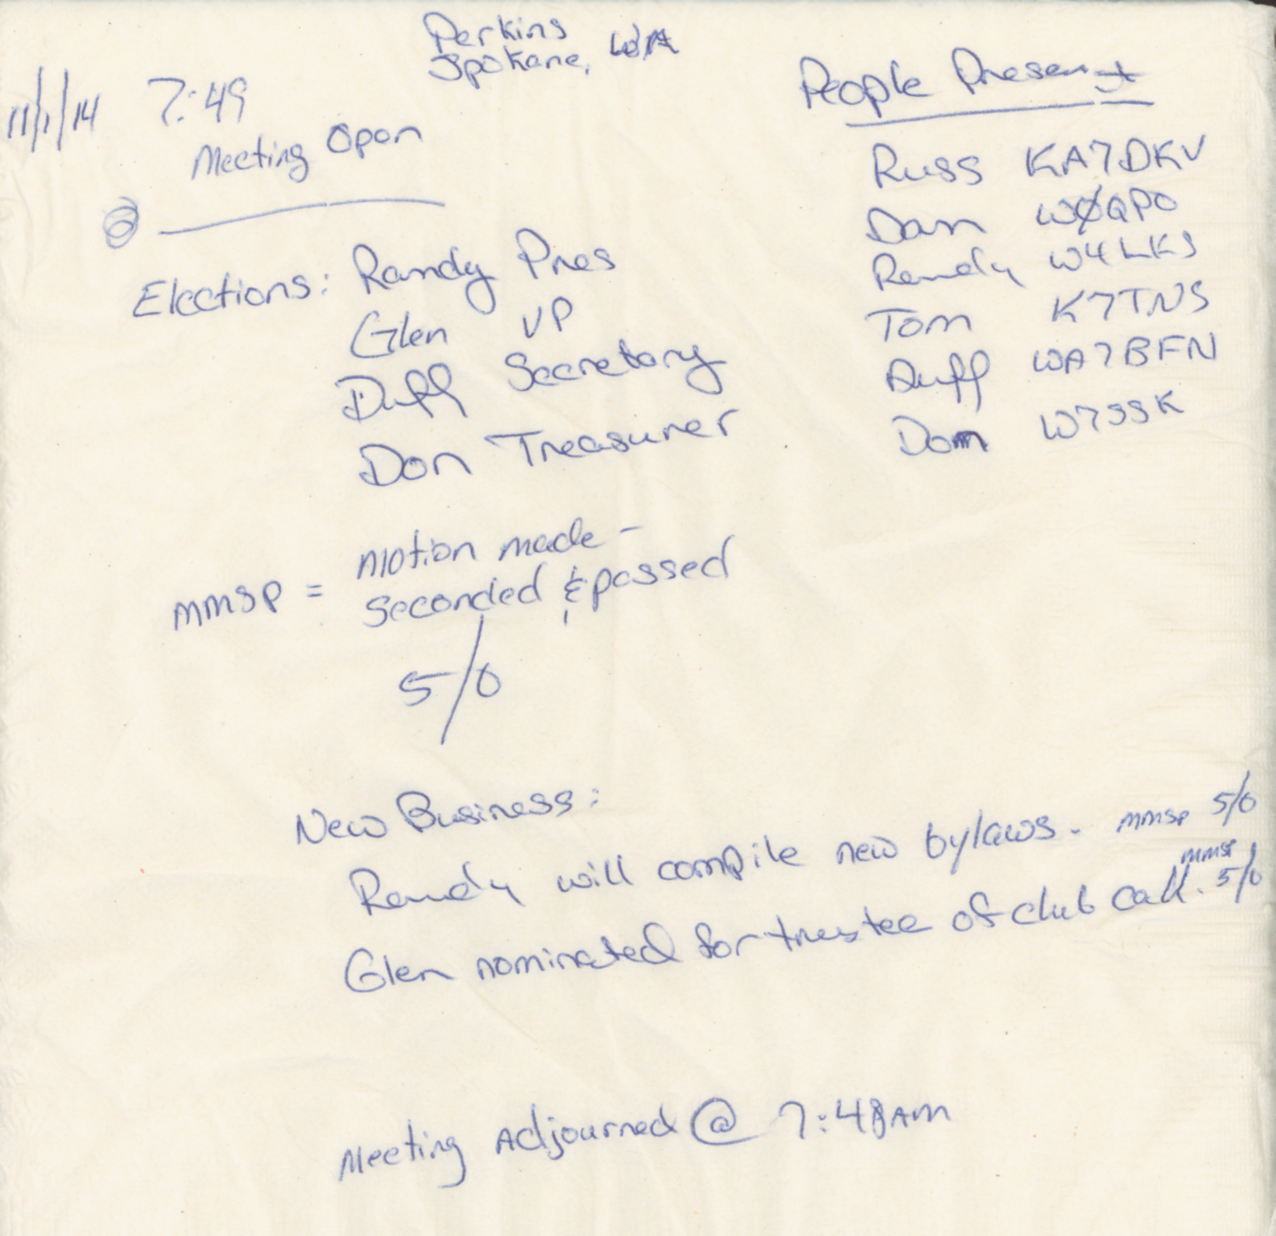 Perkins
Spokane, WA
11/1/14 7:49
Meeting Open
People Present
Russ KA7DKV
Dan WØQPO
Randy W4LKS
Tom K7TNS
Duff WA7BFN
Don W7SSK
Elections: Randy Pres
Glen VP
Duff Secretary
Don Treasurer
MMSP = Motion made -
Seconded & passed
5/0
New Business:
Randy will compile new bylaws. MMSP 5/0
Glen nominated for trustee of club call. MMSP 5/0
Meeting Adjourned @ 7:48AM